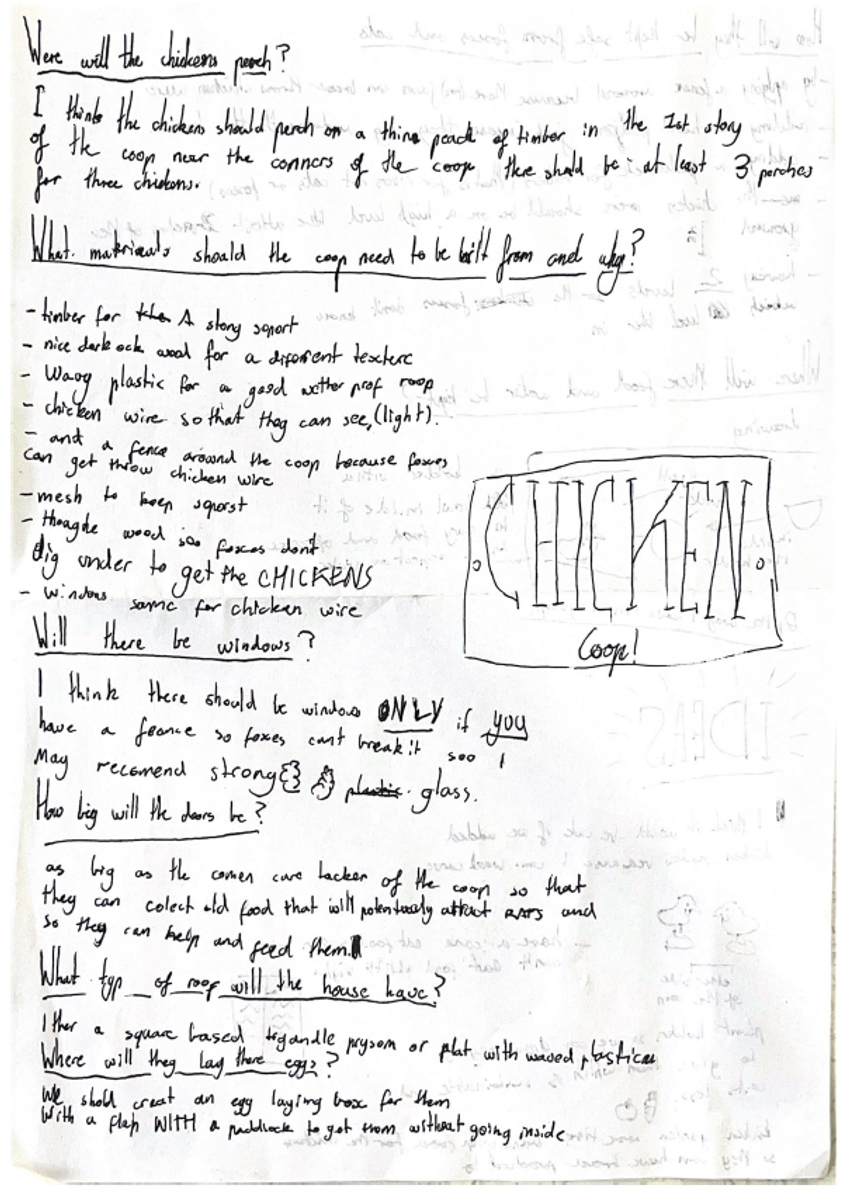 Were will the chickens perch?
I think the chickens should perch on a thine peack of timber in the 1st story
of the coop near the conners of the coop there should be at least 3 perches
for three chickens.
What matirieals should the coop need to be built from and why?
- timber for A story suport
- nice dark oak wood for a diforent texterc
- Wavy plastic for a good wether prof roop
- chicken wire so that they can see, (light).
- and a fence aroound the coop because foxes
can get throw chicken wire
- mesh to keep suporst
- thougde wood soo foxes dont
dig under to get the CHICKENS
- windows same for chicken wire
CHICKEN
Coop!
Will there be windows?
I think there should be windows ONLY if you
have a feance so foxes cant break it soo I
May recomend strong plastic glass.
How big will the doors be?
as big as the comen care tacker of the coop so that
they can colect old food that will potentaoly attract RATS and
so they can help and feed them.
What typ of roof will the house have?
Ither a square based trigandle prysom or plat with waved plastican
Where will they lay there eggs?
We shold creat an egg laying box for them
With a flap WITH a paddlock to get them without going inside